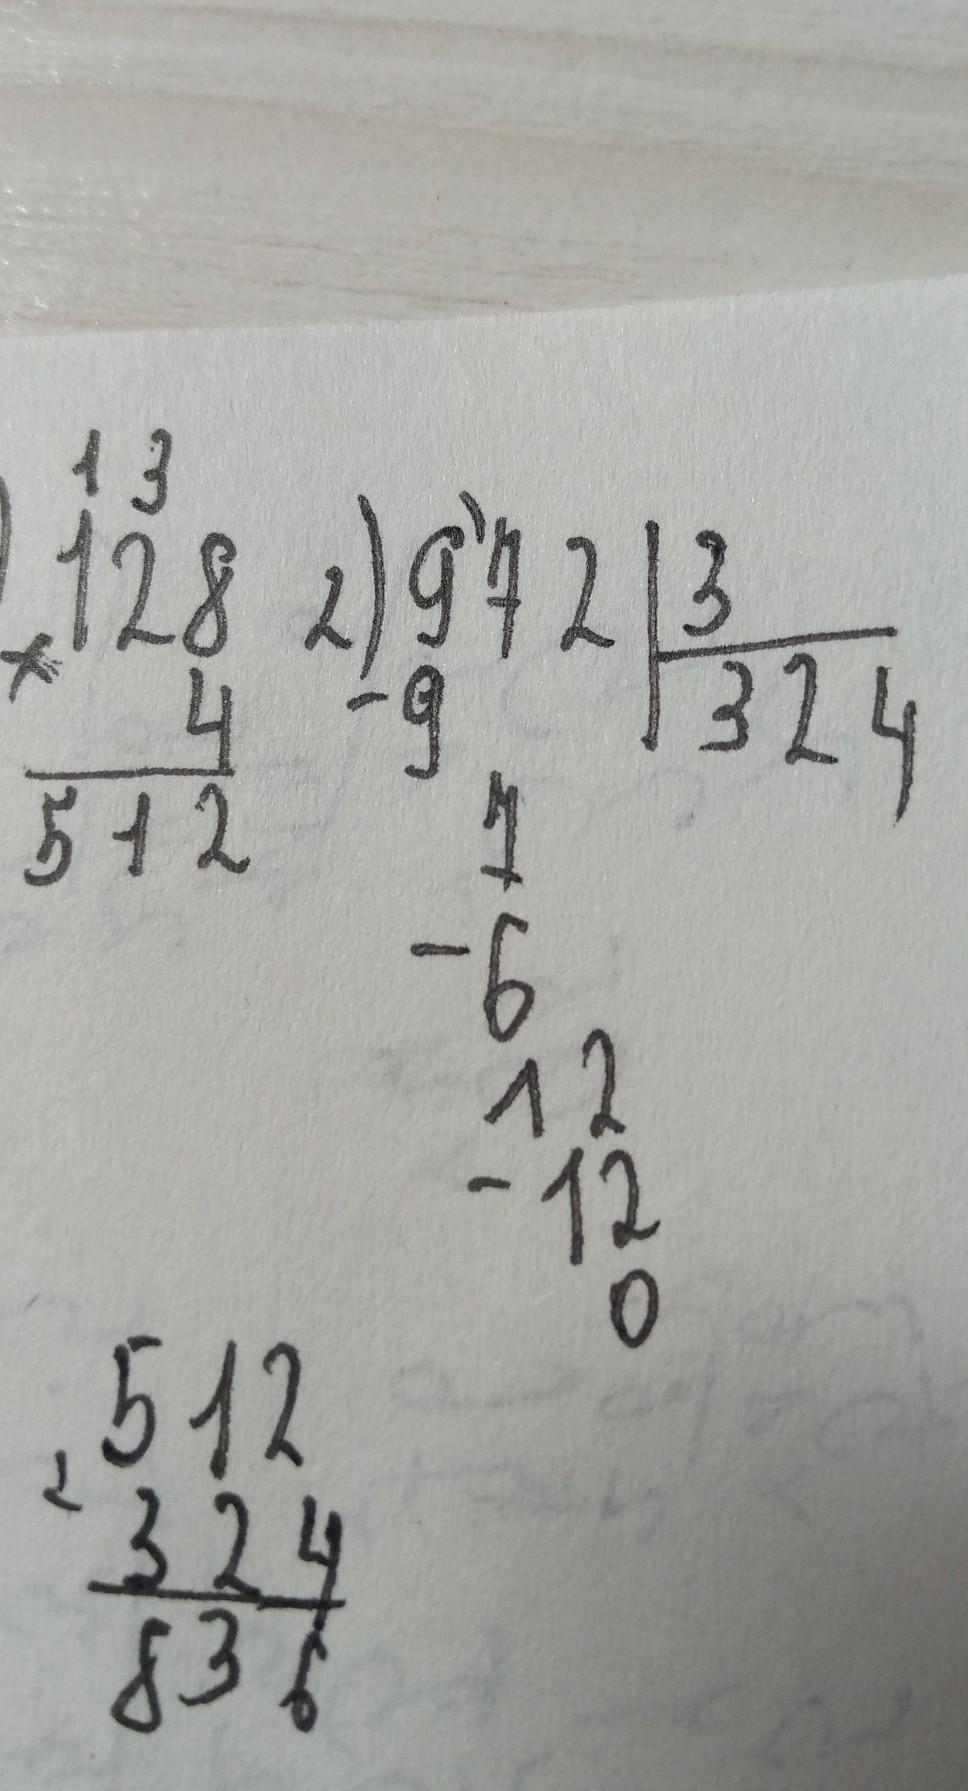 1 3
) 128
× 4
512
2) 972 | 3
-9 324
7
-6
12
-12
0
512
324
836